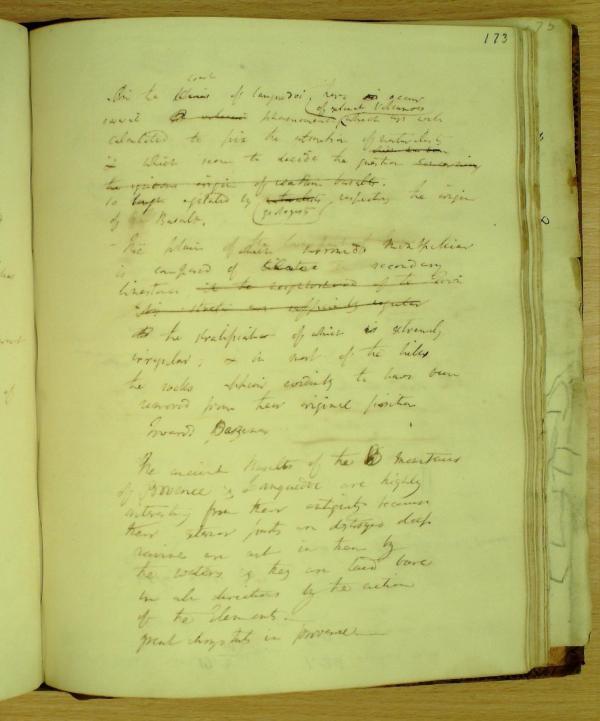 173
coast
In the Plains of Languedoc, there is occur
of extinct Volcanoes
several phaenomena, which are well
calculated to fix the attention of naturalists
& which seem to decide the question
the igneous origin of certain basalts.
so long agitated by naturalists, respecting the origin
geologists
of Basalt.
- The plain of which surrounds Montpellier
is composed of secondary
limestone in the neighbourhood of the
strata are sufficiently regular
the stratification of which is extremely
irregular; & in most of the hills
the rocks appear evidently to have been
removed from their original position
Towards
The ancient basalts of the B Mountains
of Provence & Languedoc are highly
interesting from their antiquity because
their exterior parts are destroyed deep
ravines are cut in them by
the waters & they are laid bare
in all directions by the action
of the Elements.
great in Provence